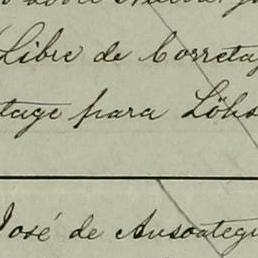 Libre de Corretag
tage para Löhs
José de Ansoategu